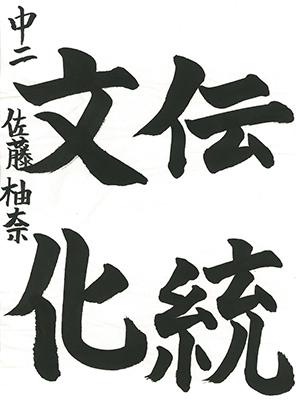 伝統
文化
中二 佐藤柚奈